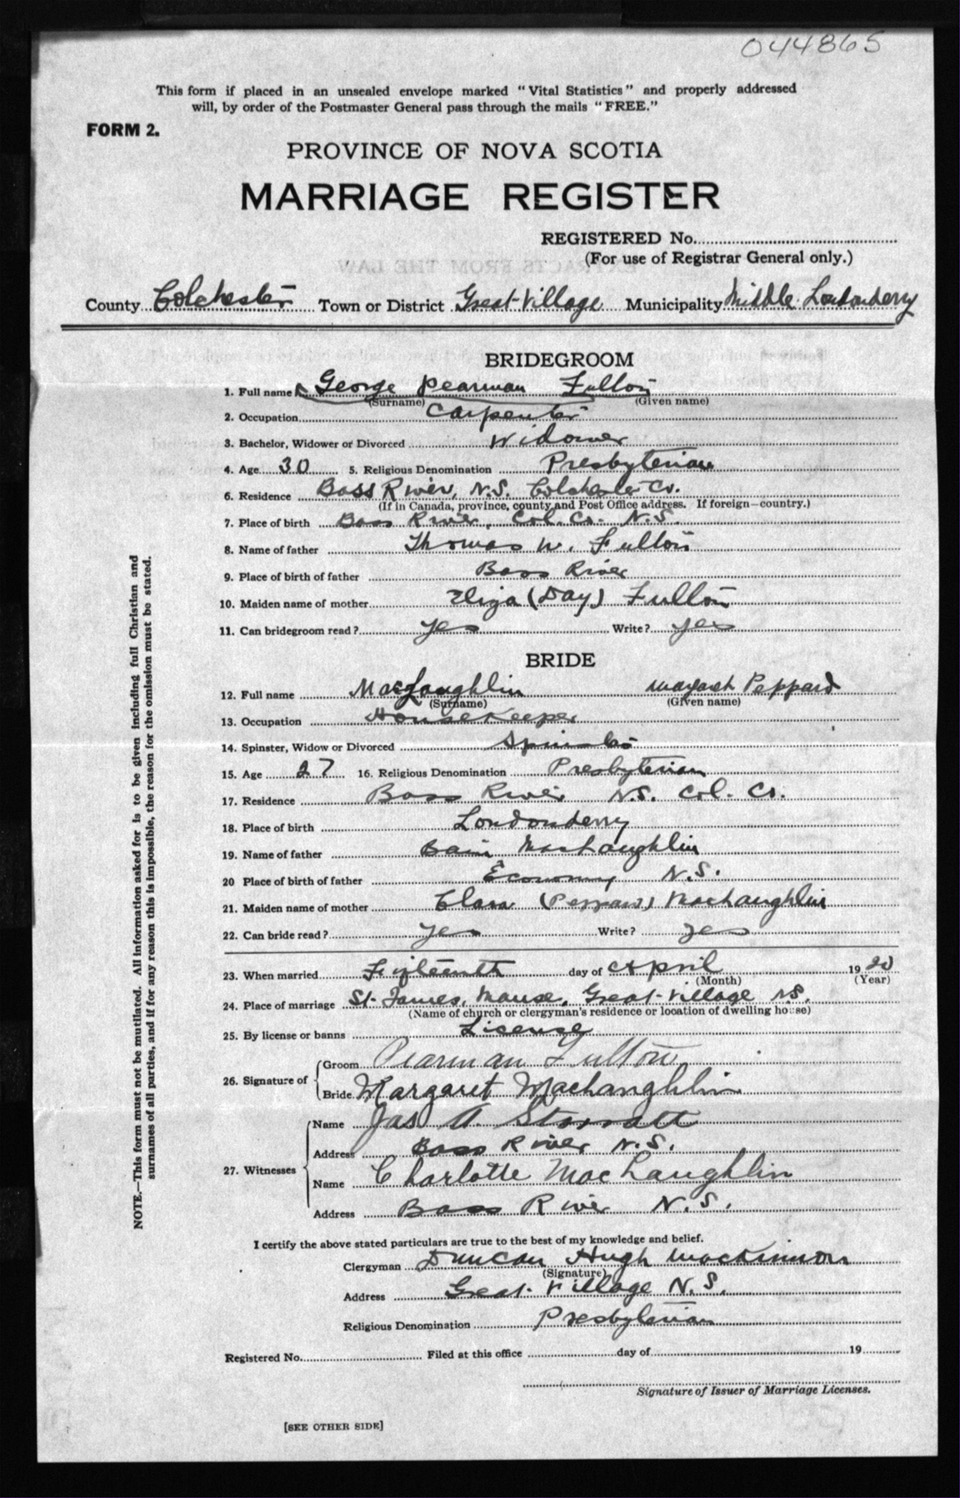 044865
This form if placed in an unsealed envelope marked "Vital Statistics" and properly addressed
will, by order of the Postmaster General pass through the mails "FREE."
FORM 2.
PROVINCE OF NOVA SCOTIA
MARRIAGE REGISTER
REGISTERED No.
(For use of Registrar General only.)
County Colchester Town or District Great Village Municipality Middle Londonderry
BRIDEGROOM
1. Full name George Pearman Fulton
(Surname) (Given name)
2. Occupation Carpenter
3. Bachelor, Widower or Divorced Widower
4. Age 30 5. Religious Denomination Presbyterian
6. Residence Bass River, N.S. Colchester Co.
(If in Canada, province, county and Post Office address. If foreign—country.)
7. Place of birth Bass River, Col. Co. N.S.
8. Name of father Thomas W. Fulton
9. Place of birth of father Bass River
10. Maiden name of mother Eliza (Day) Fulton
11. Can bridegroom read? yes Write? yes
BRIDE
12. Full name MacLaughlin Peppard
(Surname) (Given name)
13. Occupation Housekeeper
14. Spinster, Widow or Divorced
15. Age 27 16. Religious Denomination Presbyterian
17. Residence Bass River N.S. Col. Co.
18. Place of birth Londonderry
19. Name of father MacLaughlin
20 Place of birth of father Economy N.S.
21. Maiden name of mother Clara MacLaughlin
22. Can bride read? yes Write? yes
23. When married Fifteenth day of April 1920
(Month) (Year)
24. Place of marriage St. James, Manse, Great Village N.S.
(Name of church or clergyman's residence or location of dwelling house)
25. By license or banns License
26. Signature of Groom Pearman Fulton
Bride Margaret MacLaughlin
27. Witnesses Name Jas A. Starratt
Address Bass River N.S.
Name Charlotte MacLaughlin
Address Bass River N.S.
I certify the above stated particulars are true to the best of my knowledge and belief.
Clergyman Duncan Hugh MacKinnon
(Signature)
Address Great Village N.S.
Religious Denomination Presbyterian
Registered No. Filed at this office day of 19
Signature of Issuer of Marriage Licenses.
[SEE OTHER SIDE]
NOTE.—This form must not be mutilated. All information asked for is to be given including full Christian and
surnames of all parties, and if for any reason this is impossible, the reason for the omission must be stated.